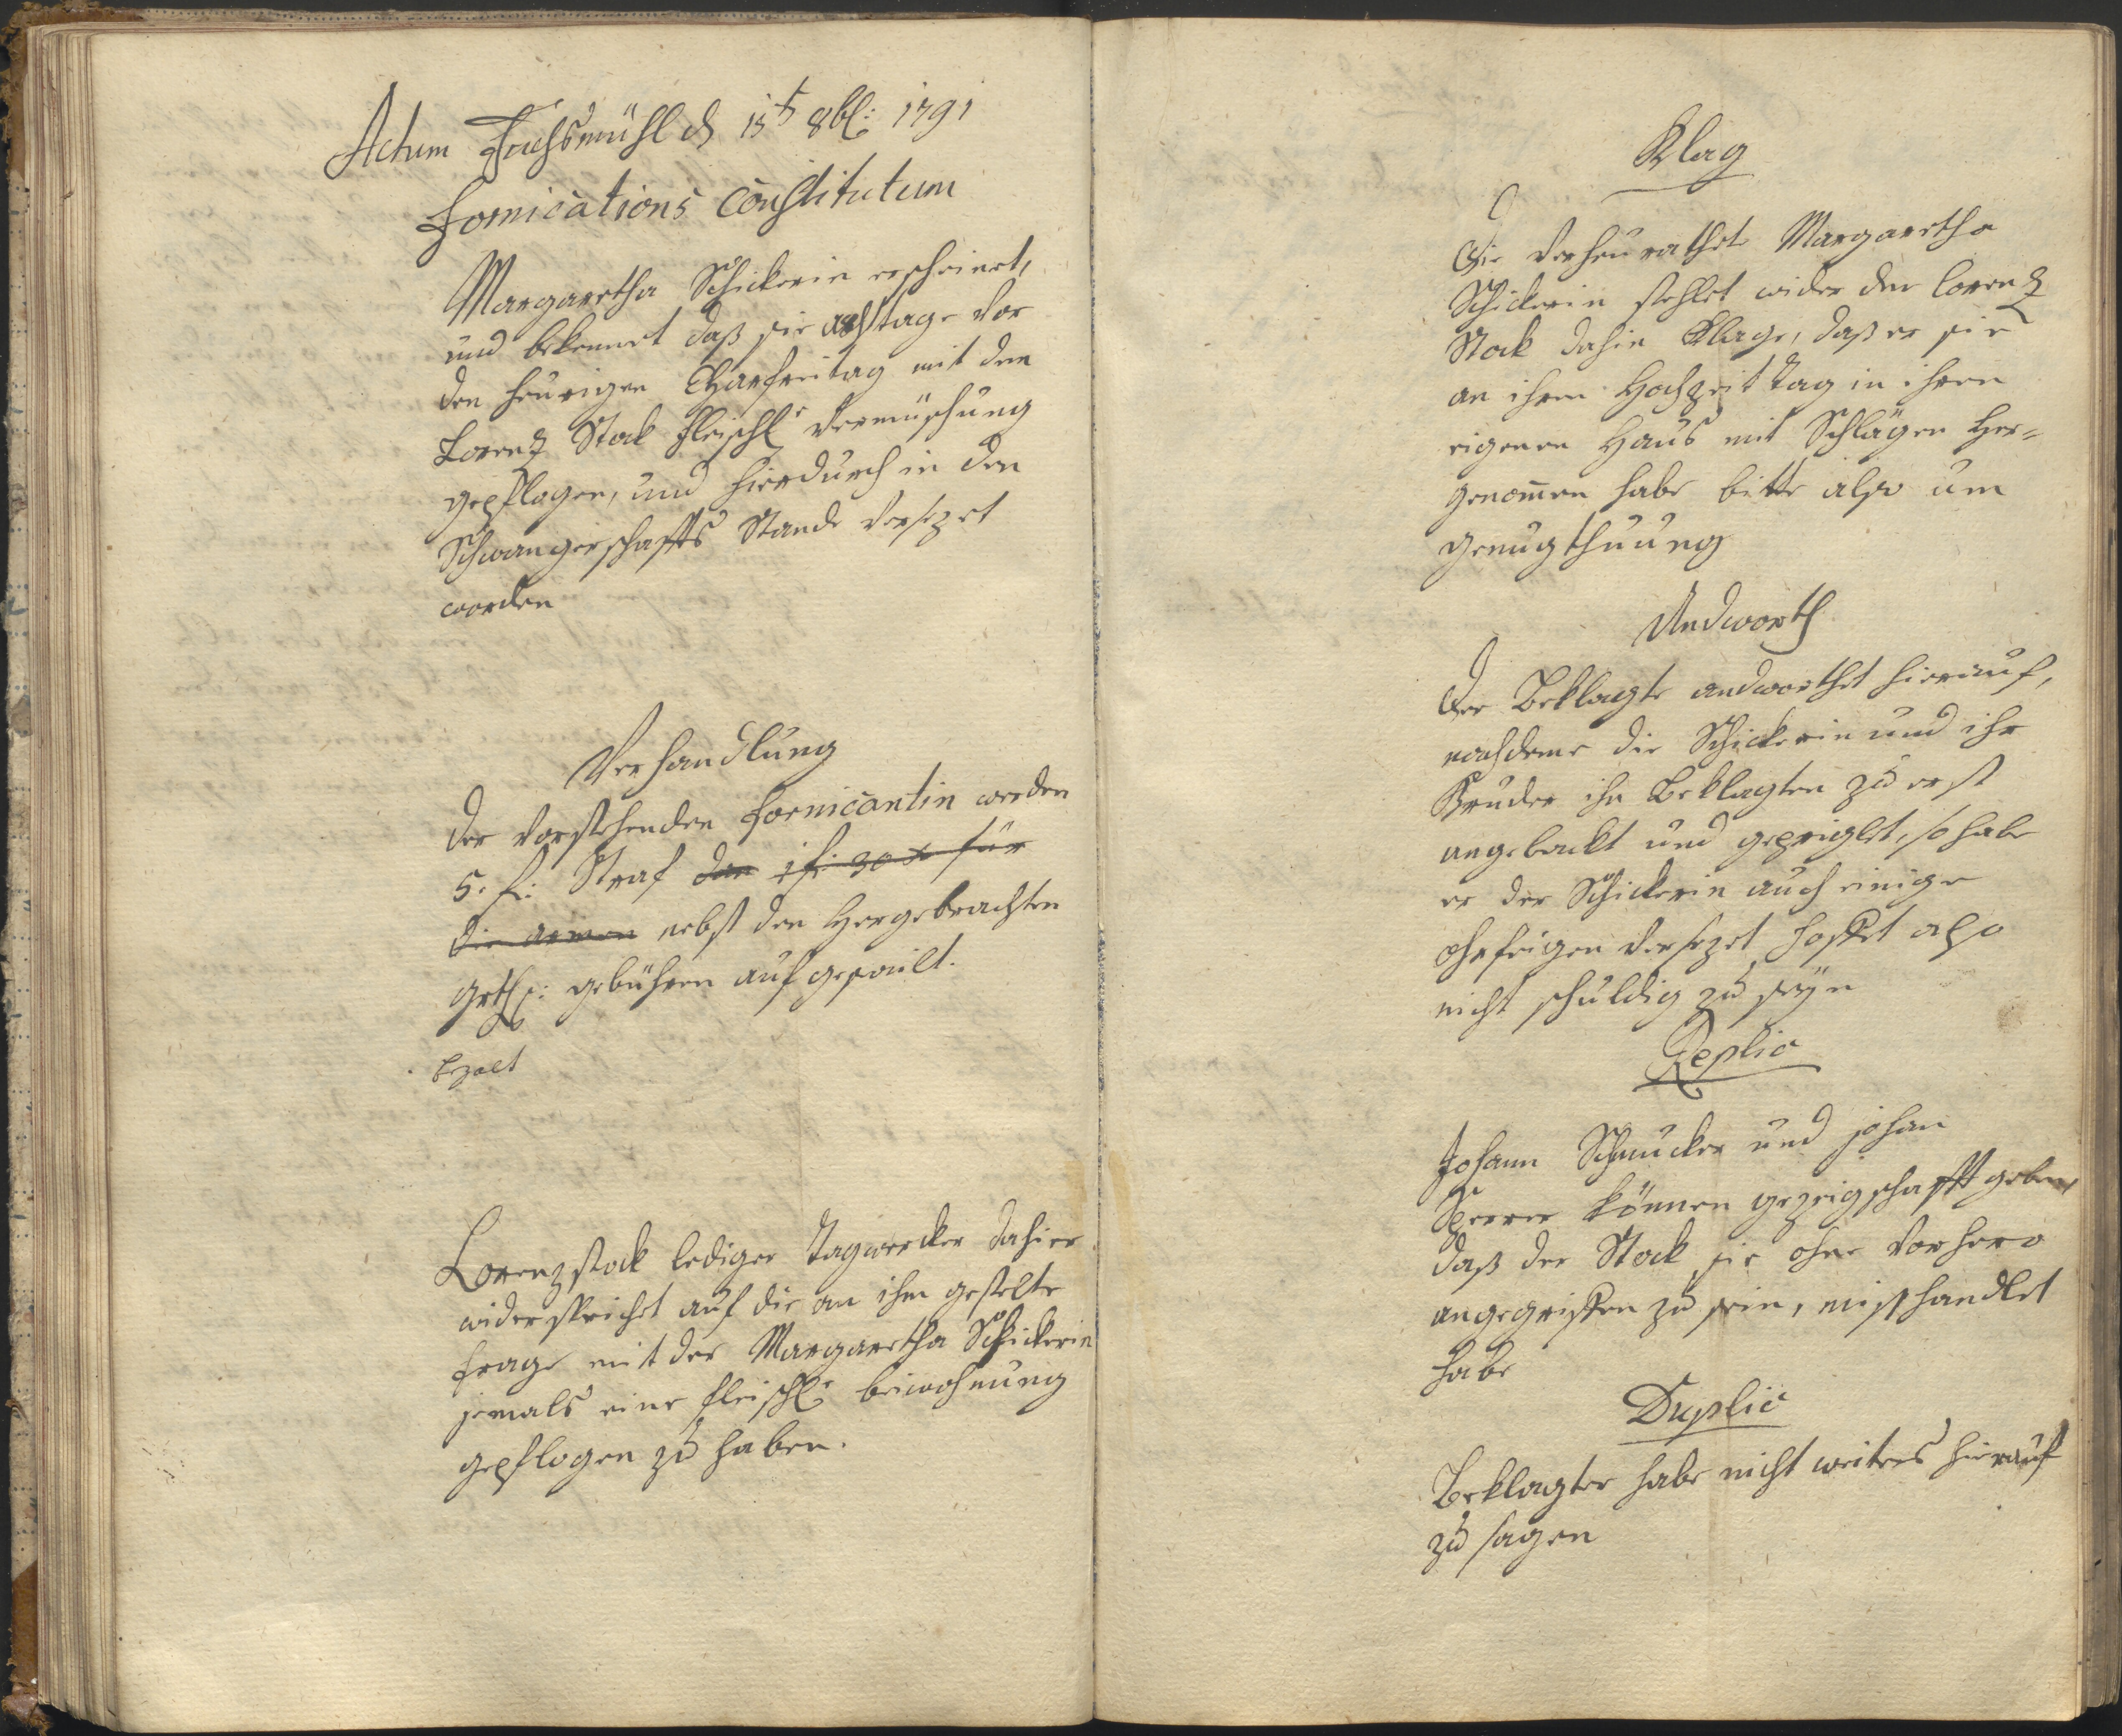 Actum Fuchsmühl d 15t 8bl: 1791
Fornications Constitutum
Margaretha Schickerin erscheinet,
und bekennet daß sie acht tage vor
den heurigen Charfreitag mit den
Lorenz Stock fleischl: Vermischung
gepflogen, und hierdurch in den
Schwangerschaffts Stande versezet
worden
Verhandlung
Der vorstehenden Fornicantin werden
5. f: Straf dan 1 f: 30 x für
die armen nebst den hergebrachten
grthl: gebühren aufgeheilt.
bezalt
Lorenz Stock lediger Tagwercker dahier
widerspricht auf die an ihm gestelte
frage mit der Margaretha Schickerin
jemals eine fleischl: beiwohnung
gepflogen zu haben.
Klag
Die verheurathete Margaretha
Schickerin stehlet wider den Lorenz
Stock dahin Klage, daß er sie
an ihren Hochzeit tag in ihren
eigenen Haus mit Schlägen her=
genom̄en habe bitte also um
genugthuung
Andworth
Der Beklagte andworthet hierauf,
nachdeme die Schickerin und ihr
Bruder ihn Beklagten zu erst
angepackt und geprüglet, so habe
er der Schickerin auch einige
ohrfeigen versezet hoffet also
nicht schuldig zu seÿn
Replic
Johann Schmucker und johan
können gezeigschafft geben,
daß der Stock sie ohne vorhero
angegriffen zu sein, misshandlet
habe
Duplic
Beklagter habe nicht weiters hierauf
zu sagen